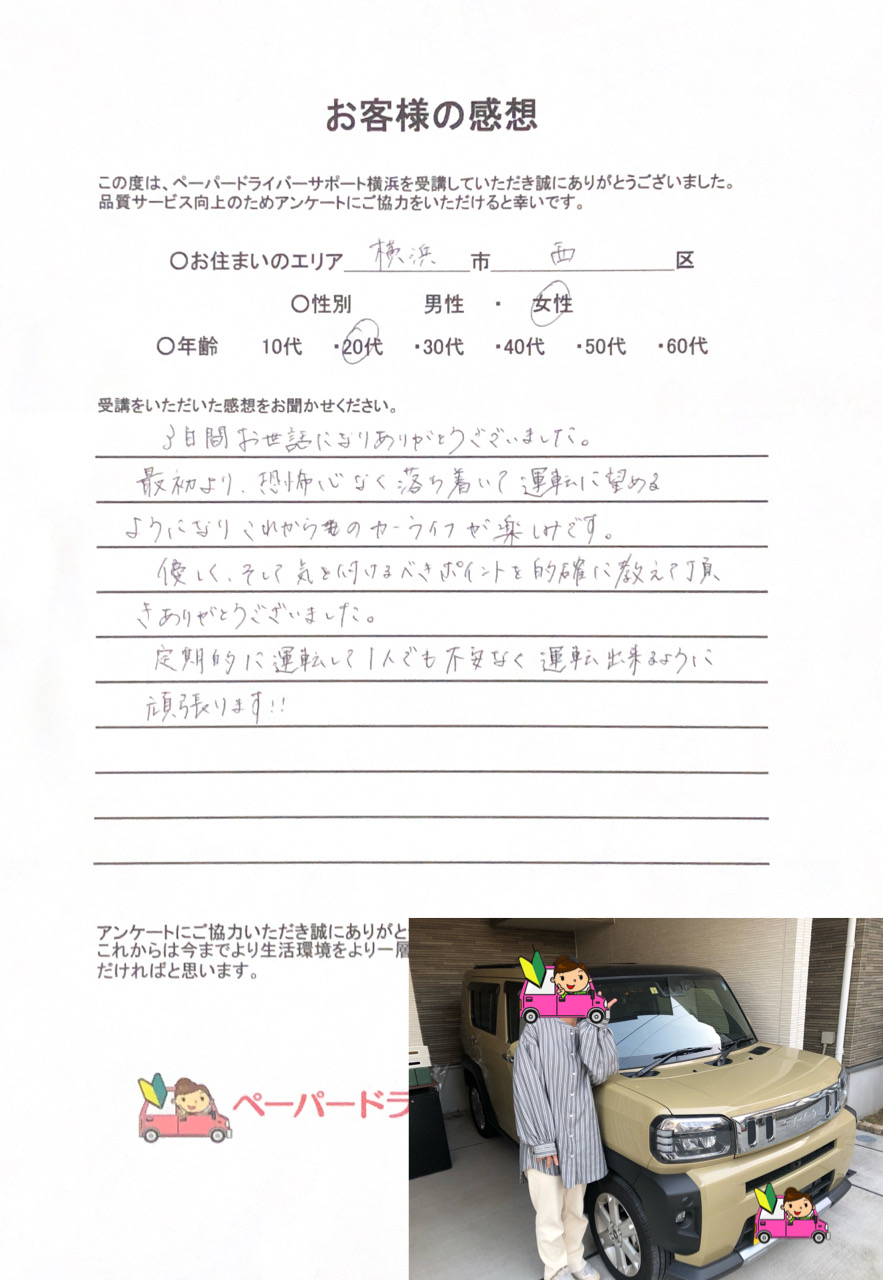 お客様の感想
この度は、ペーパードライバーサポート横浜を受講していただき誠にありがとうございました。
品質サービス向上のためアンケートにご協力をいただけると幸いです。
〇お住まいのエリア 横浜 市 西 区
〇性別 男性 ・ 女性
〇年齢 10代 ・20代 ・30代 ・40代 ・50代 ・60代
受講をいただいた感想をお聞かせください。
3日間お世話になりありがとうございました。
最初より、恐怖心なく落ち着いて運転に望める
ようになりこれからのカーライフが楽しみです。
優しく、そして気を付けるべきポイントを的確に教えて頂
きありがとうございました。
定期的に運転して1人でも不安なく運転出来るように
頑張ります!!
アンケートにご協力いただき誠にありがと
これからは今までより生活環境をより一層
だければと思います。
ペーパードラ